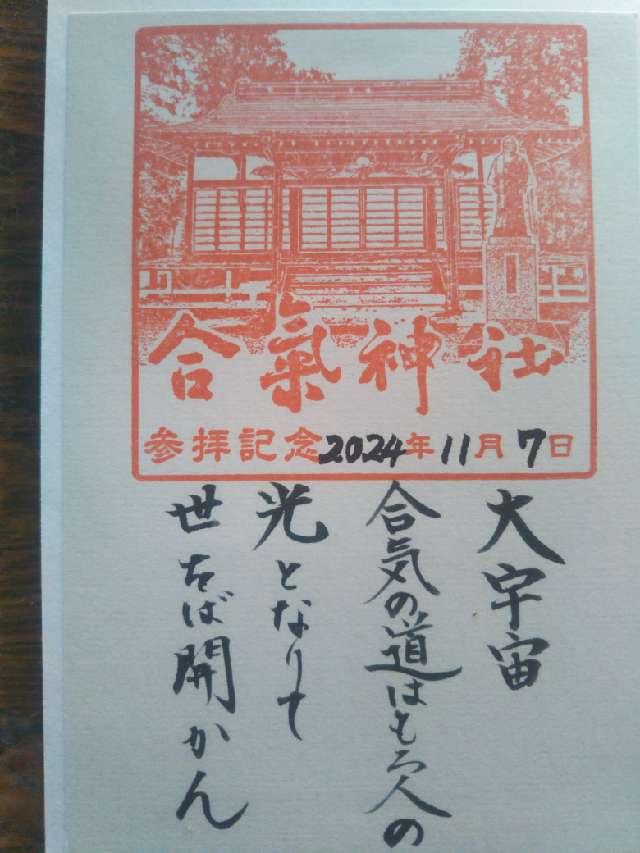 合氣神社
参拝記念2024年11月7日
大宇宙
合気の道はもろ人の
光となりて
世をば開かん